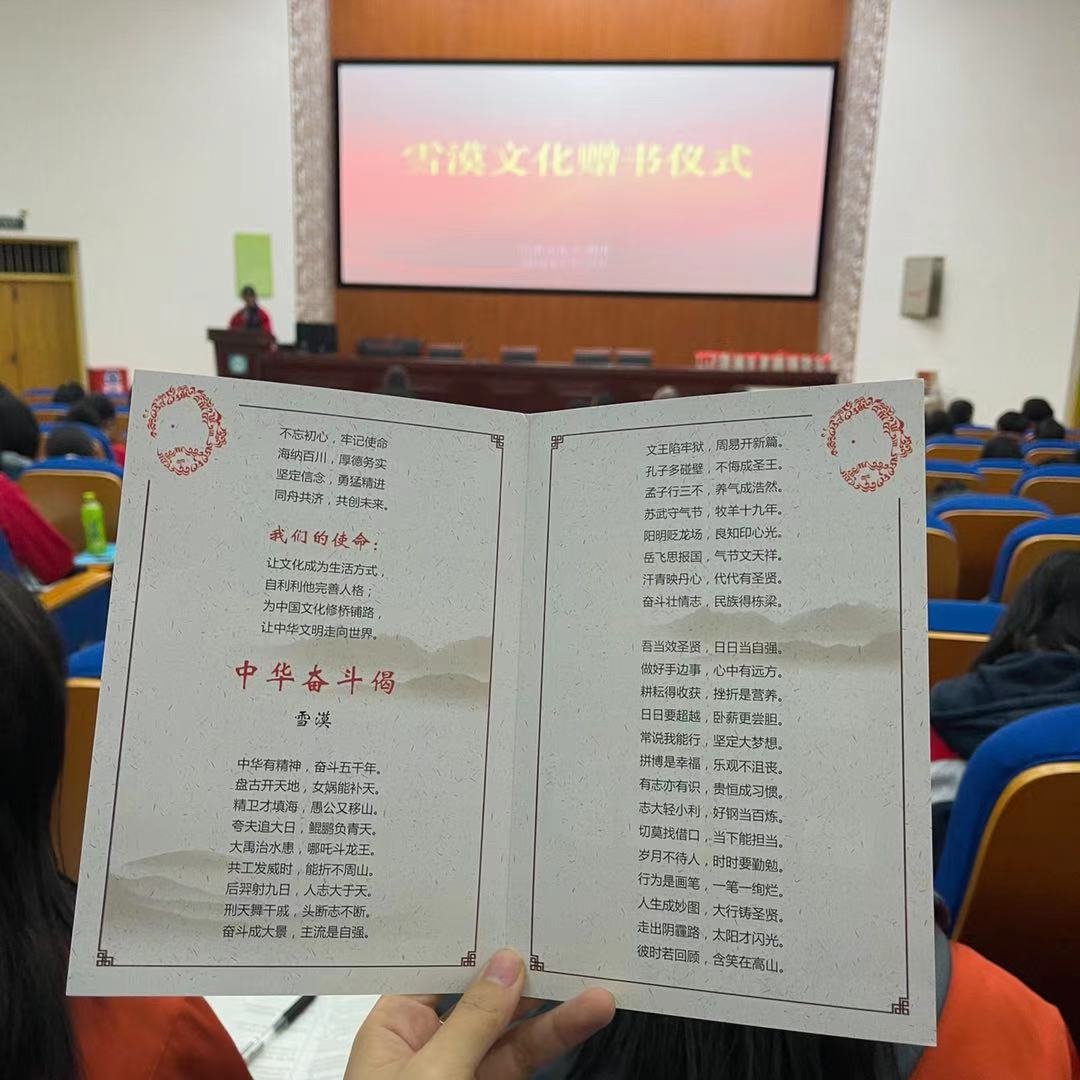 雪漠文化赠书仪式
不忘初心，牢记使命
海纳百川，厚德务实
坚定信念，勇猛精进
同舟共济，共创未来。
我们的使命：
让文化成为生活方式，
自利利他完善人格；
为中国文化修桥铺路，
让中华文明走向世界。
中华奋斗偈
雪漠
中华有精神，奋斗五千年。
盘古开天地，女娲能补天。
精卫才填海，愚公又移山。
夸夫追大日，鲲鹏负青天。
大禹治水患，哪吒斗龙王。
共工发威时，能折不周山。
后羿射九日，人志大于天。
刑天舞干戚，头断志不断。
奋斗成大景，主流是自强。
文王陷牢狱，周易开新篇。
孔子多碰壁，不悔成圣王。
孟子行三不，养气成浩然。
苏武守气节，牧羊十九年。
阳明贬龙场，良知印心光。
岳飞思报国，气节文天祥。
汗青映丹心，代代有圣贤。
奋斗壮情志，民族得栋梁。
吾当效圣贤，日日当自强。
做好手边事，心中有远方。
耕耘得收获，挫折是营养。
日日要超越，卧薪更尝胆。
常说我能行，坚定大梦想。
拼博是幸福，乐观不沮丧。
有志亦有识，贵恒成习惯。
志大轻小利，好钢当百炼。
切莫找借口，当下能担当。
岁月不待人，时时要勤勉。
行为是画笔，一笔一绚烂。
人生成妙图，大行铸圣贤。
走出阴霾路，太阳才闪光。
彼时若回顾，含笑在高山。